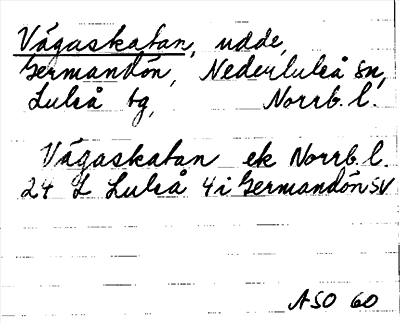 Vågaskatan, udde,
Germandön, Nederluleå sn,
Luleå tg, Norrb. l.
Vågaskatan ek Norrb. l.
24 L Luleå 4 i Germandön SV
ASO 60